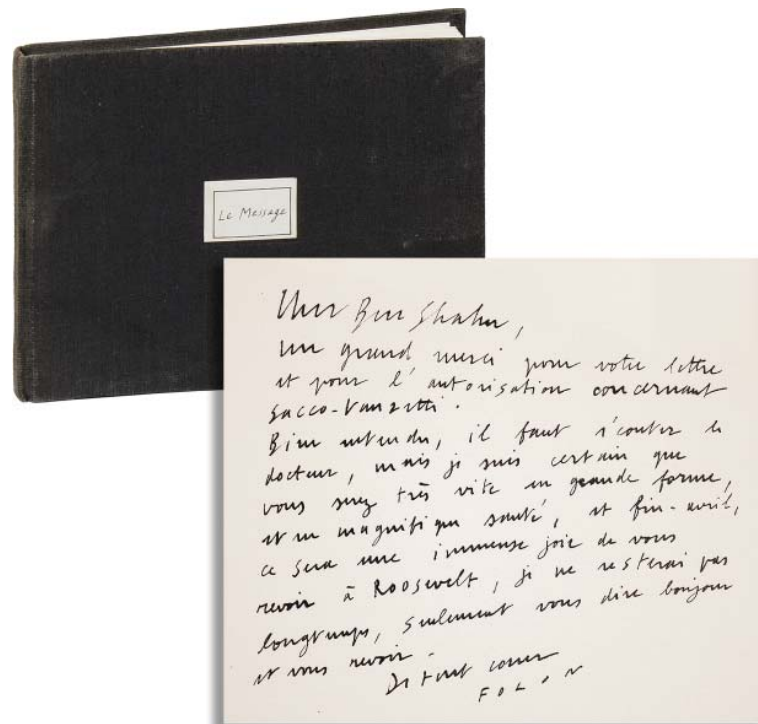 Le Message
Cher Ben Shahn,
un grand merci pour votre lettre
et pour l'autorisation concernant
Sacco-Vanzetti.
Bien entendu, il faut écouter le
docteur, mais je suis certain que
vous serez très vite en grande forme,
et en magnifique santé, et fin-avril,
ce sera une immense joie de vous
revoir à Roosevelt, je ne resterai pas
longtemps, seulement vous dire bonjour
et vous revoir.
De tout coeur
FOLON